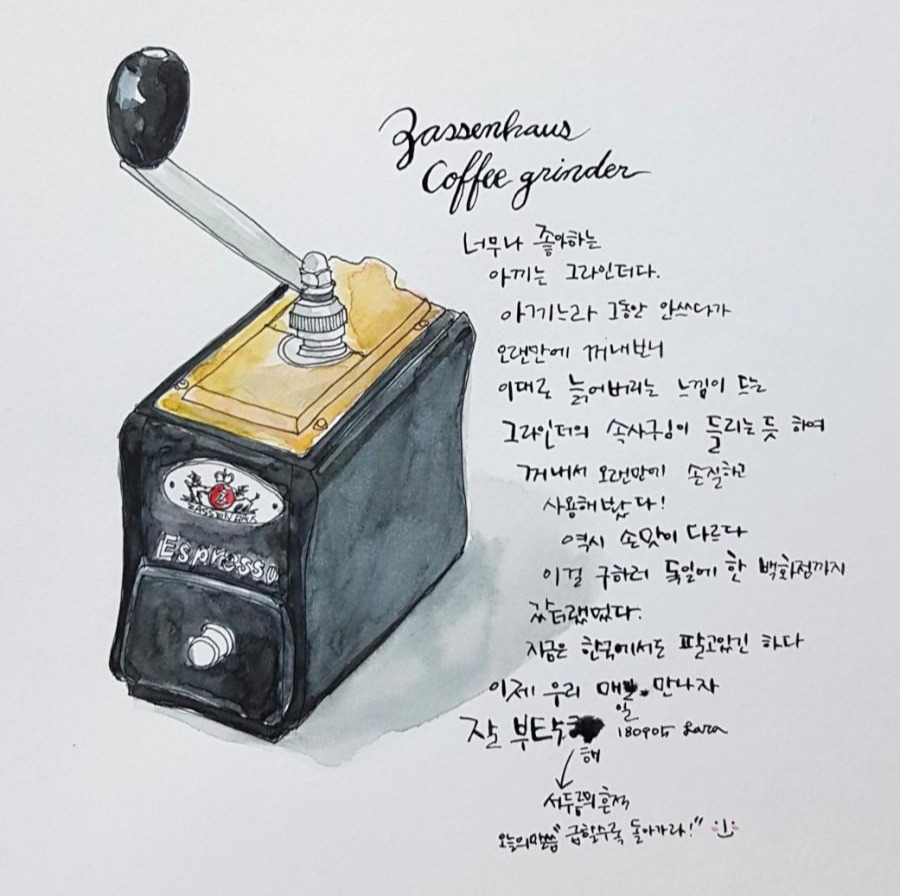 Zassenhaus
Coffee grinder
너무나 좋아하는
아끼는 그라인더다.
아끼느라 그동안 안쓰다가
오랜만에 꺼내보니
이대로 늙어버리는 느낌이 드는
그라인더의 속사구임이 들리는 듯 하여
꺼내서 오랜만에 손질하고
사용해 봤다!
역시 손맛이 다르다
이걸 구하러 독일에 한 백화점까지
갔더랬었다.
지금은 한국에서도 팔고있긴 하다
이제 우리 매일 만나자
잘 부탁해
180905 Lara
서두름의 흔적
오늘의 말씀 "급할수록 돌아가라!"
ZASSENHAUS
Espresso